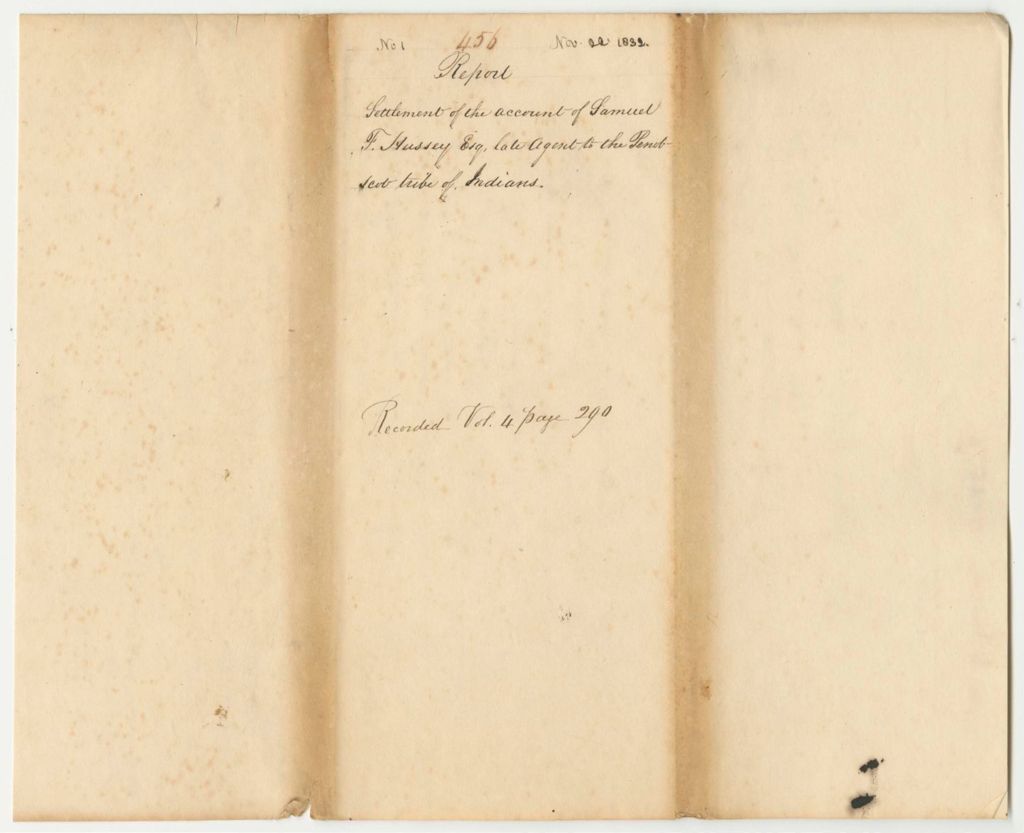 No 1 456 Nov. 22 1832.
Report
Settlement of the account of Samuel
F. Hussey Esq, late Agent to the Penob-
scot tribe of Indians.
Recorded Vol. 4 page 290